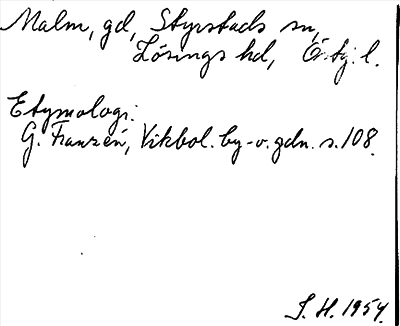 Malm, gd, Styrstads sn,
Lösings hd, Östg. l.
Etymologi:
G. Franzén, Vikbol. by- o. gdn. s. 108.
S. H. 1954.